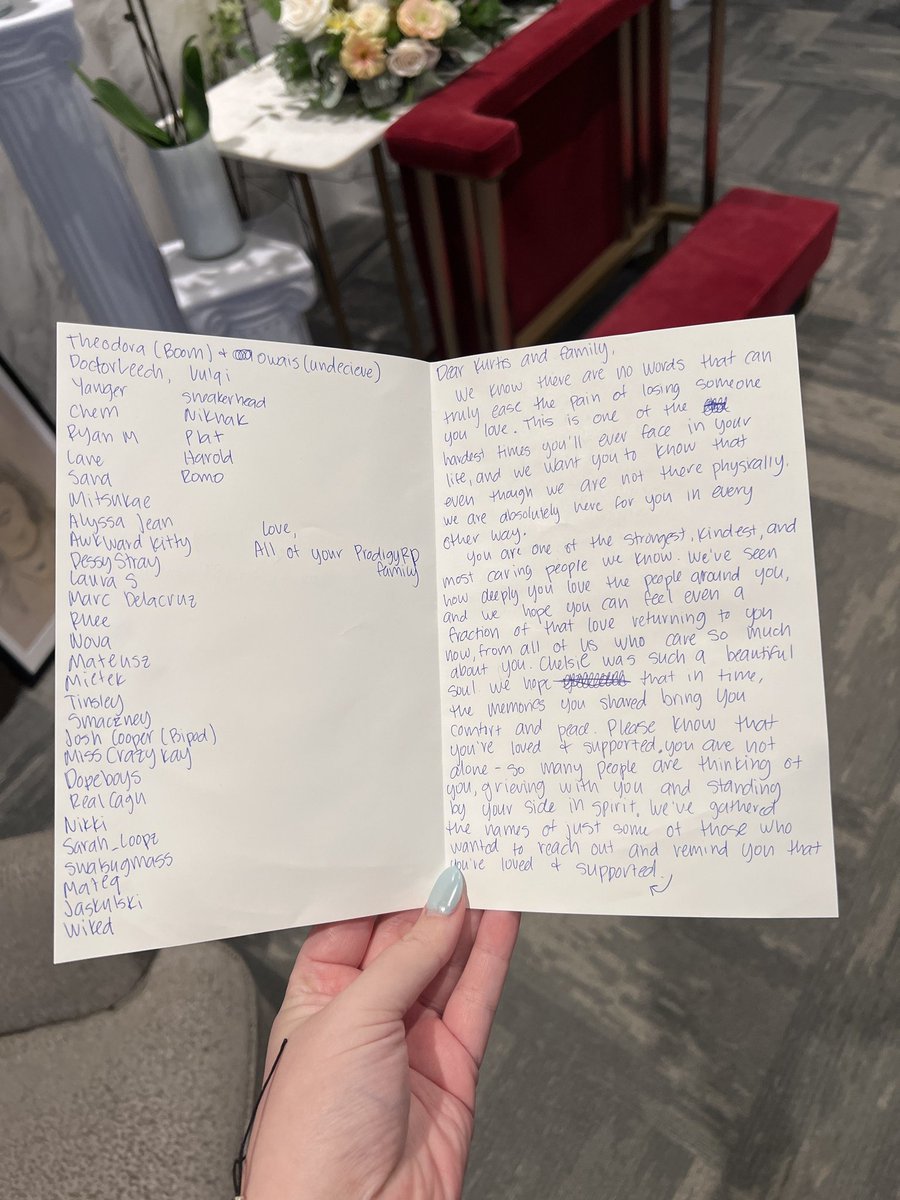 Theodora (Boom) & owais (undecieve)
DoctorLeech, Vulgi
Yanger sneakerhead
Chem Niknak
Ryan M Plat
Lane Harold
Sana Romo
Mitsukae
Alyssa Jean
Awkward Kitty
DessyStray
Laura S
Marc Delacruz
Rhee
Nova
Mateusz
Mietek
Tinsley
Smaczney
Josh Cooper (Bipod)
Miss Crazy Kay
Dopeboys
RealCagu
Nikki
Sarah_Loopz
swabugmass
Mateq
Jaskulski
Wiked
love,
All of your ProdigyRP
family
Dear Kurtis and family,
We know there are no words that can
truly ease the pain of losing someone
you love. This is one of the
hardest times you'll ever face in your
life, and we want you to know that
even though we are not there physically.
we are absolutely here for you in every
other way.
You are one of the strongest, kindest, and
most caring people we know. We've seen
how deeply you love the people around you,
and we hope you can feel even a
fraction of that love returning to you
now, from all of us who care so much
about you. Chelsie was such a beautiful
soul. we hope that in time,
the memories you shared bring you
comfort and peace. Please know that
you're loved & supported, you are not
alone - so many people are thinking of
you, grieving with you and standing
by your side in spirit. We've gathered
the names of just some of those who
wanted to reach out and remind you that
you're loved & supported.